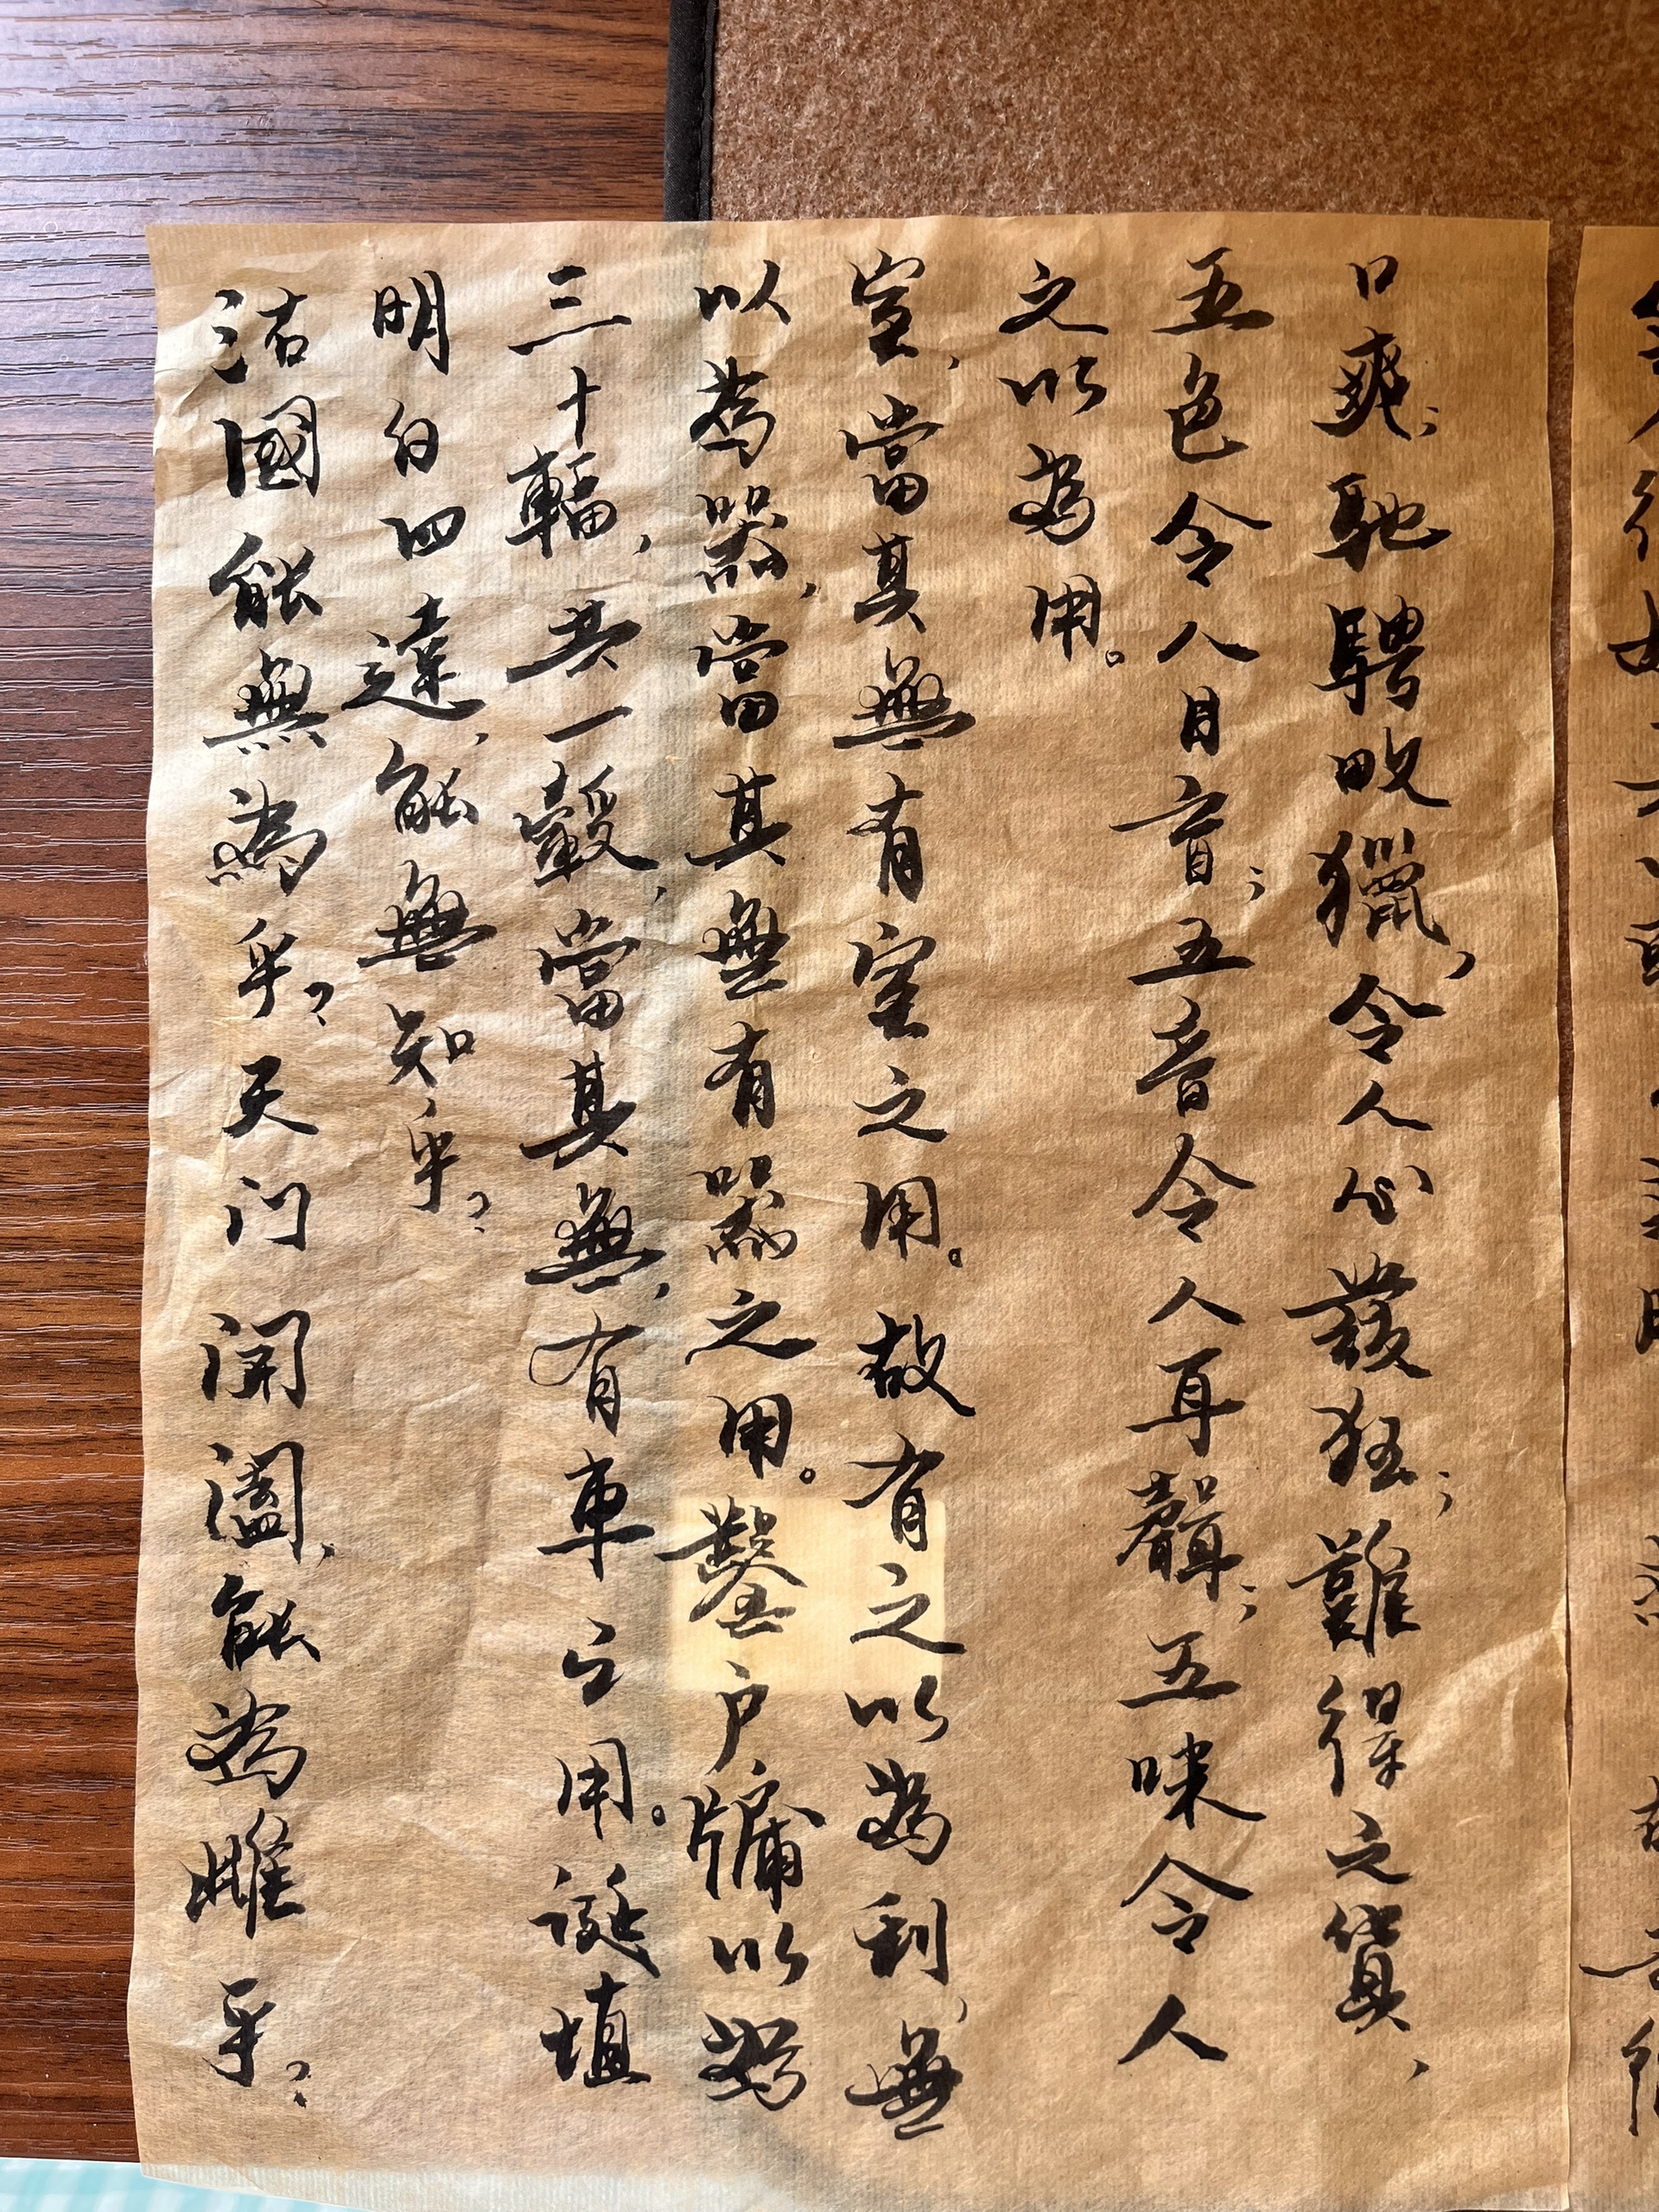 治國能無為乎？天門開闔，能為雌乎？
明白四達，能無知乎？
三十輻，共一轂，當其無，有車之用。埏埴
以為器，當其無有器之用。鑿户牖以為
室，當其無有室之用。故有之以為利，無
之以為用。
五色令人目盲；五音令人耳聾；五味令人
口爽；馳騁畋獵，令人心發狂；難得之貨，